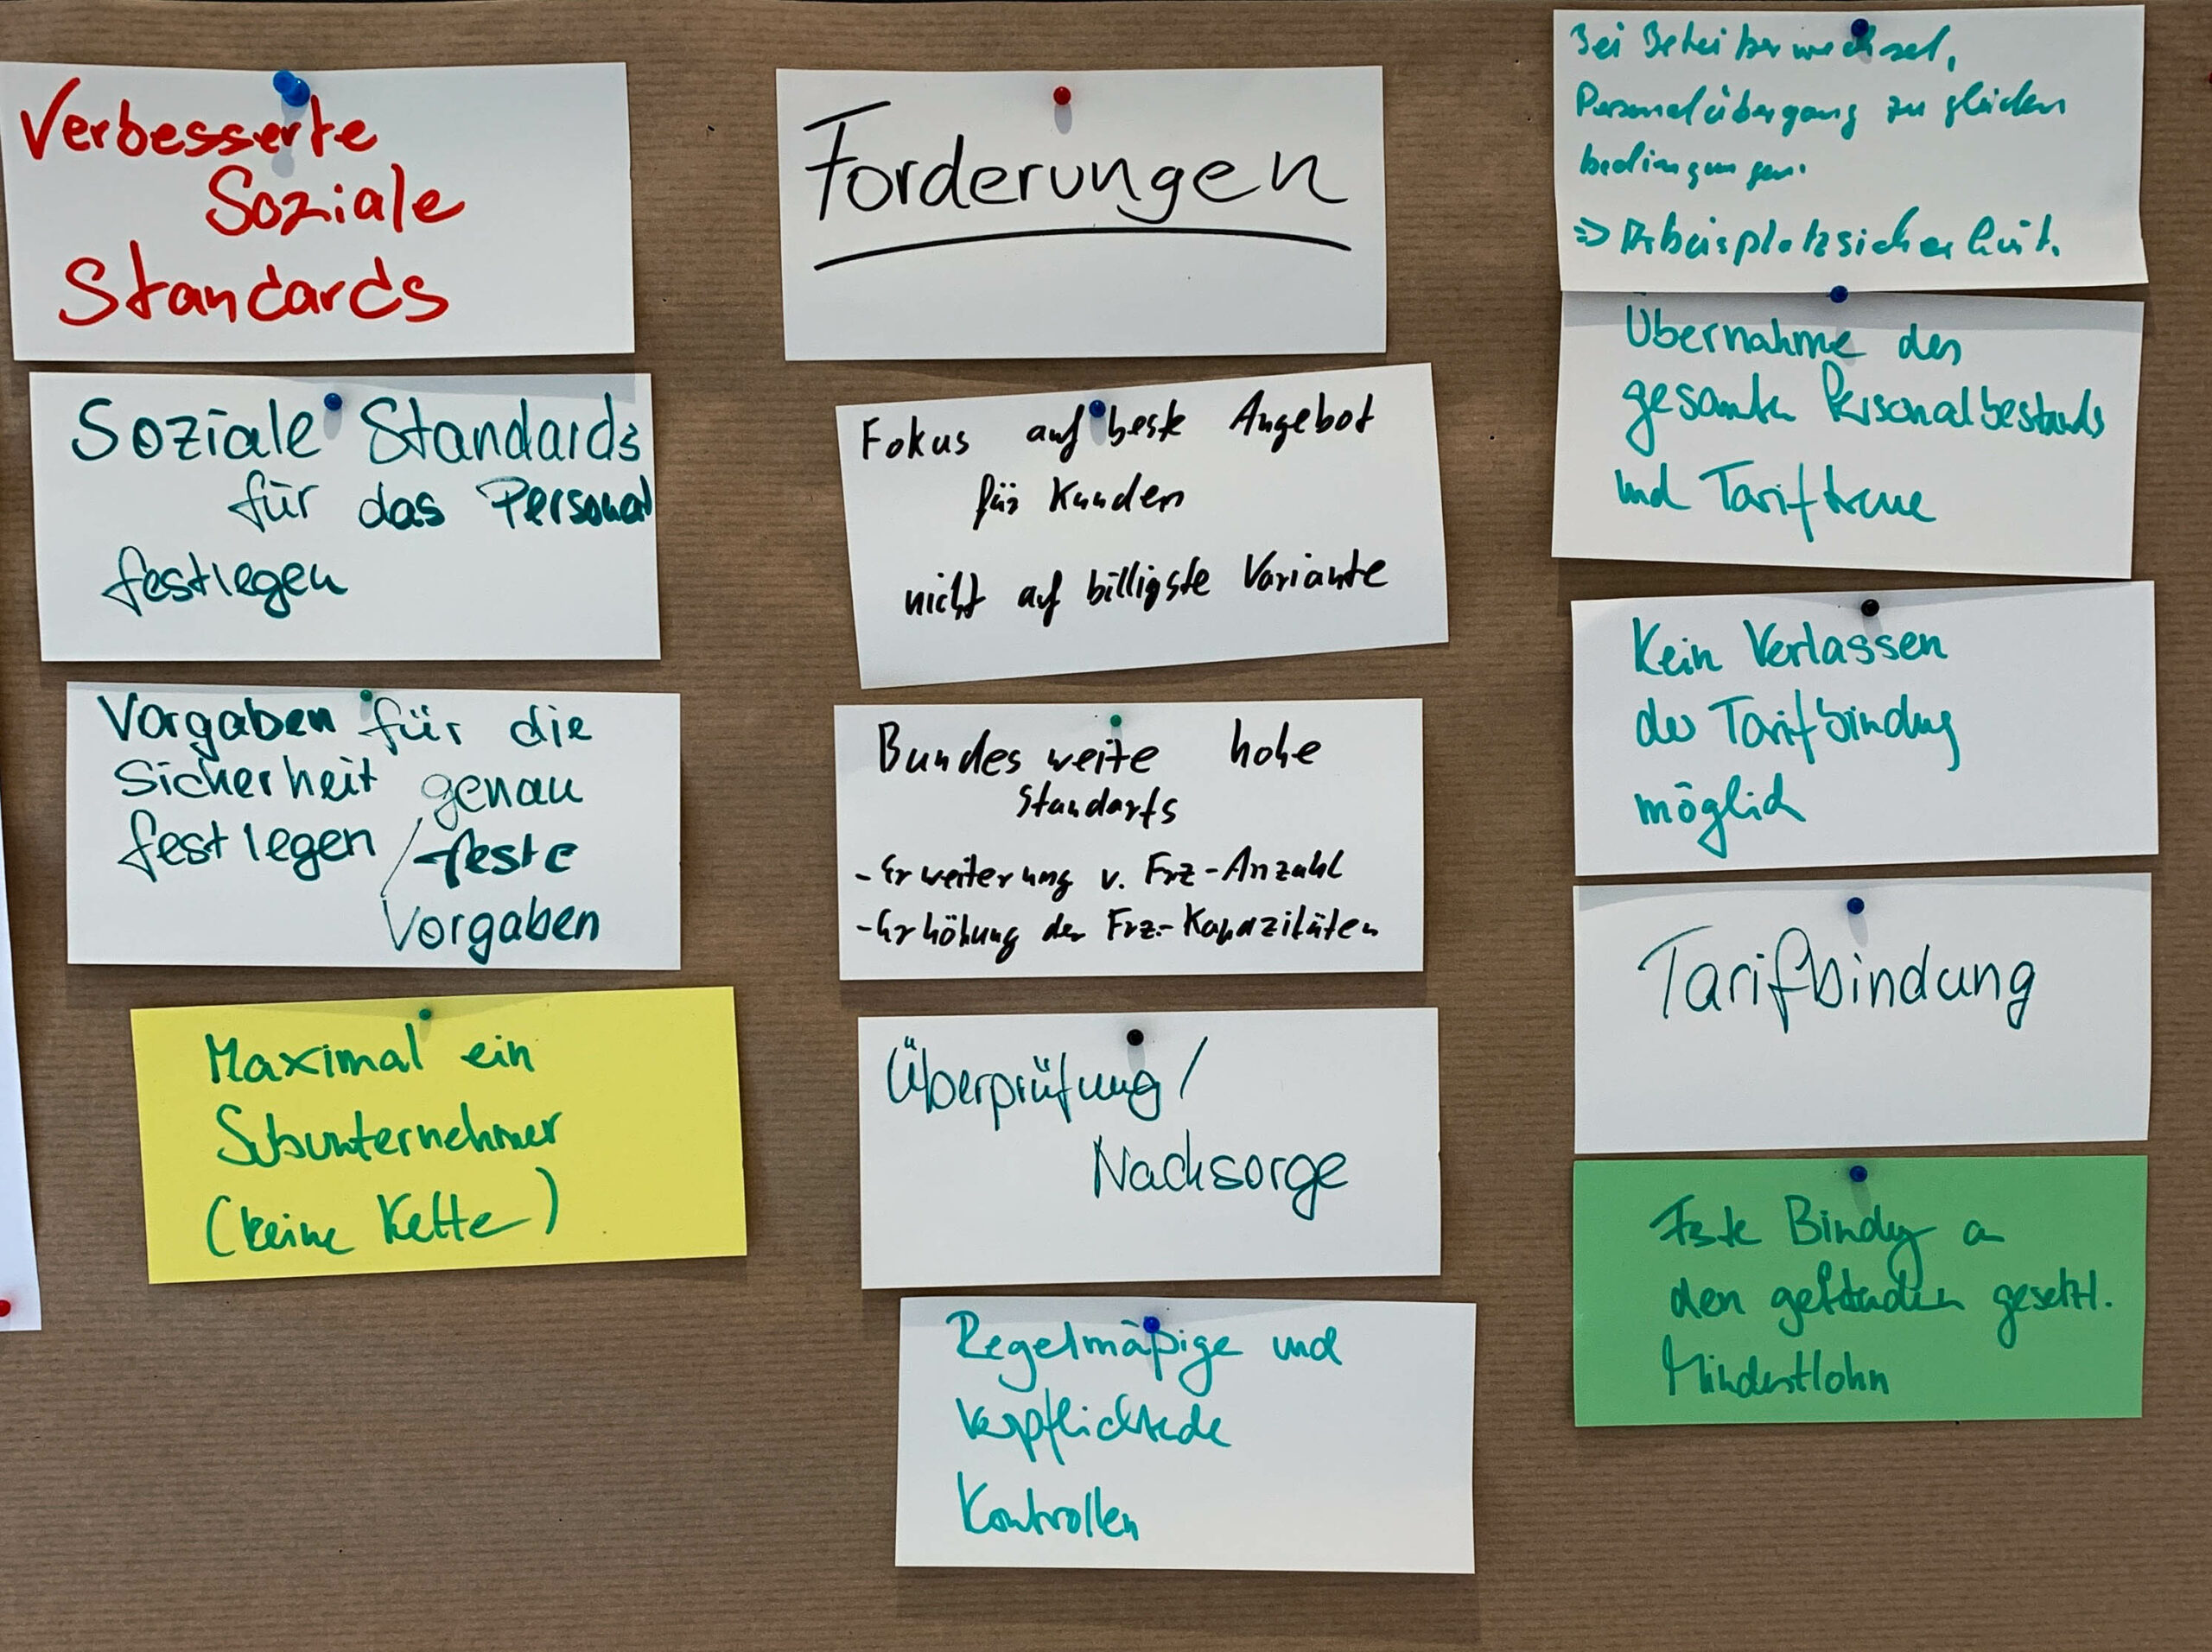 Verbesserte
Soziale
Standards
Soziale Standards
für das Personal
festlegen
Vorgaben für die
Sicherheit genau
festlegen / feste
Vorgaben
Maximal ein
Subunternehmer
(keine Kette)
Forderungen
Fokus auf beste Angebot
für Kunden
nicht auf billigste Variante
Bundesweite hohe
Standarts
- Erweiterung v. Frz-Anzahl
- Erhöhung der Frz.-Kapazitäten
Überprüfung /
Nachsorge
Regelmäßige und
verpflichtede
Kontrollen
Bei Betreiberwechsel,
Personalübergang zu gleichen
bedingungen.
=> Arbeisplatzsicherheit.
Übernahme des
gesamten Personalbestands
und Tariftreue
Kein Verlassen
der Tarifbindung
möglich
Tarifbindung
Feste Bindung an
den geltenden gesetzl.
Mindestlohn